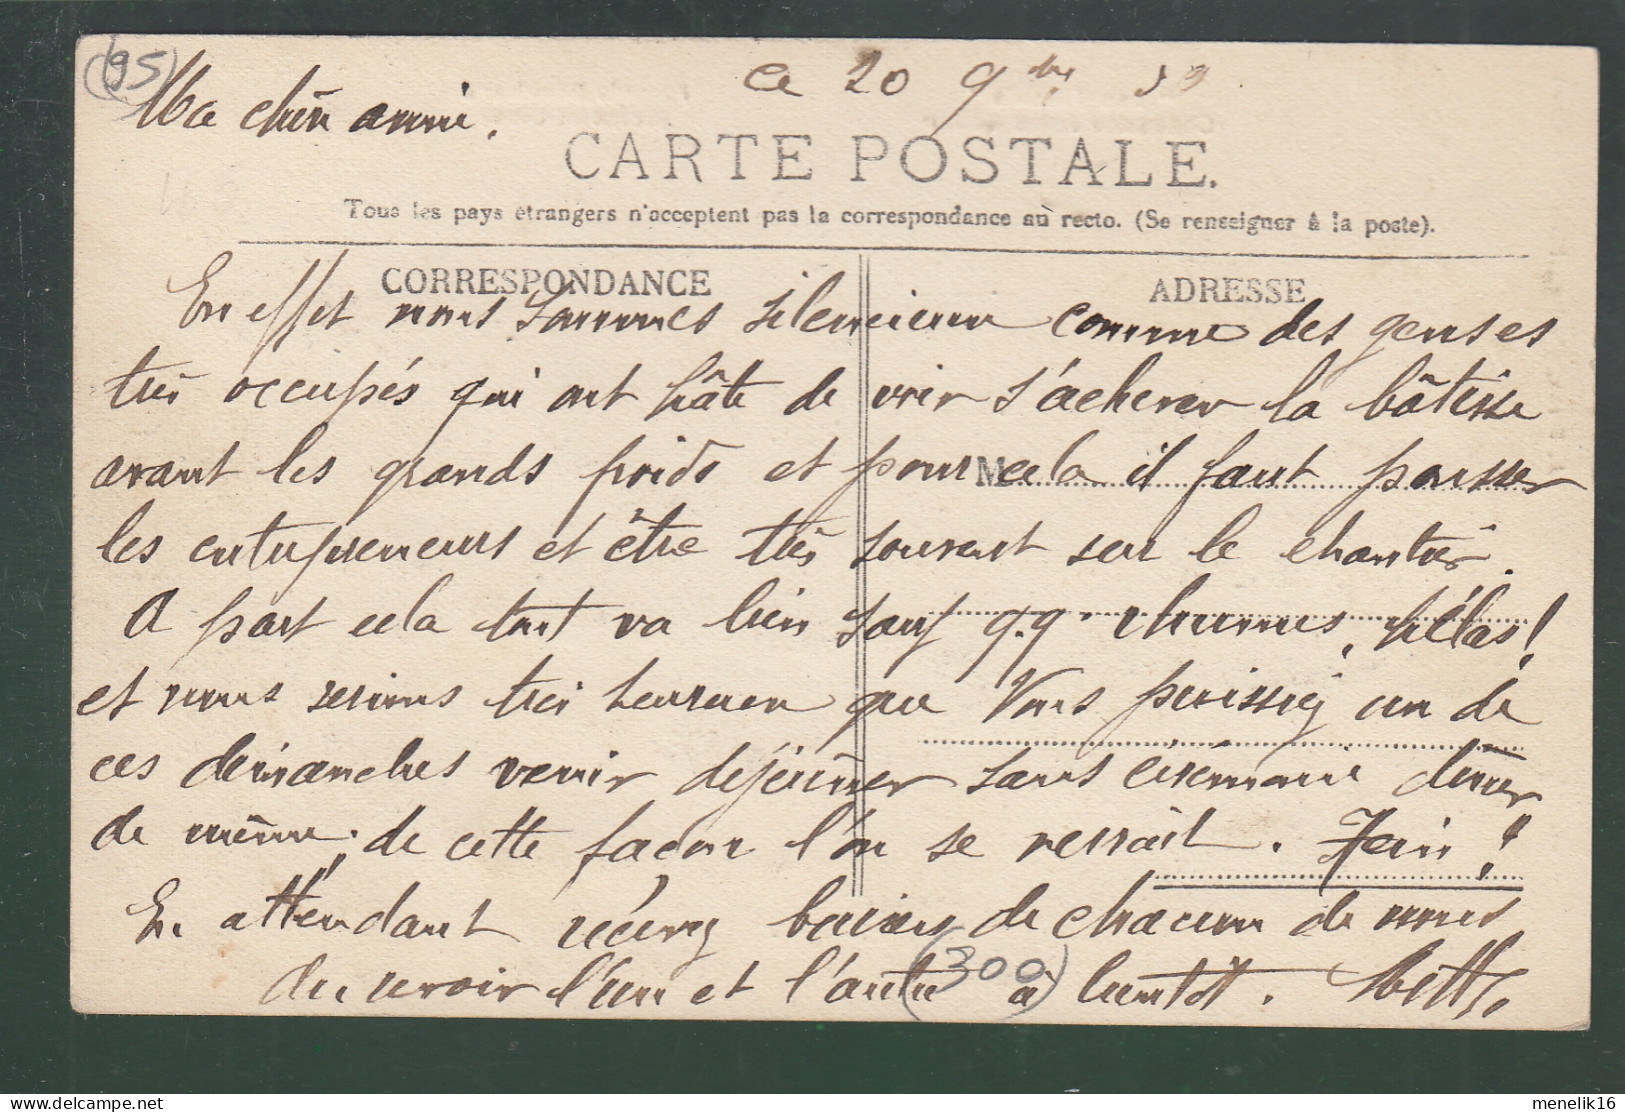 (95)
Ce 20 9bre
Ma chère amie.
CARTE POSTALE.
Tous les pays étrangers n'acceptent pas la correspondance au recto. (Se renseigner à la poste).
CORRESPONDANCE
ADRESSE
En effet nous sommes silencieux comme des gens
très occupés qui ont hâte de voir s'achever la bâtisse
avant les grands froids et pour cela il faut pousser
M
les entrepreneurs et être très souvent sur le chantier.
A part cela tout va bien sauf qq. rhumes, hélas !
et nous serions très heureux que vous puissiez un de
ces dimanches venir déjeuner sans cérémonie dîner
de même, de cette façon l'on se verrait.
En attendant recevez baisers de chacun de nous
au revoir l'un et l'autre à bientôt.
(300)
menelik16